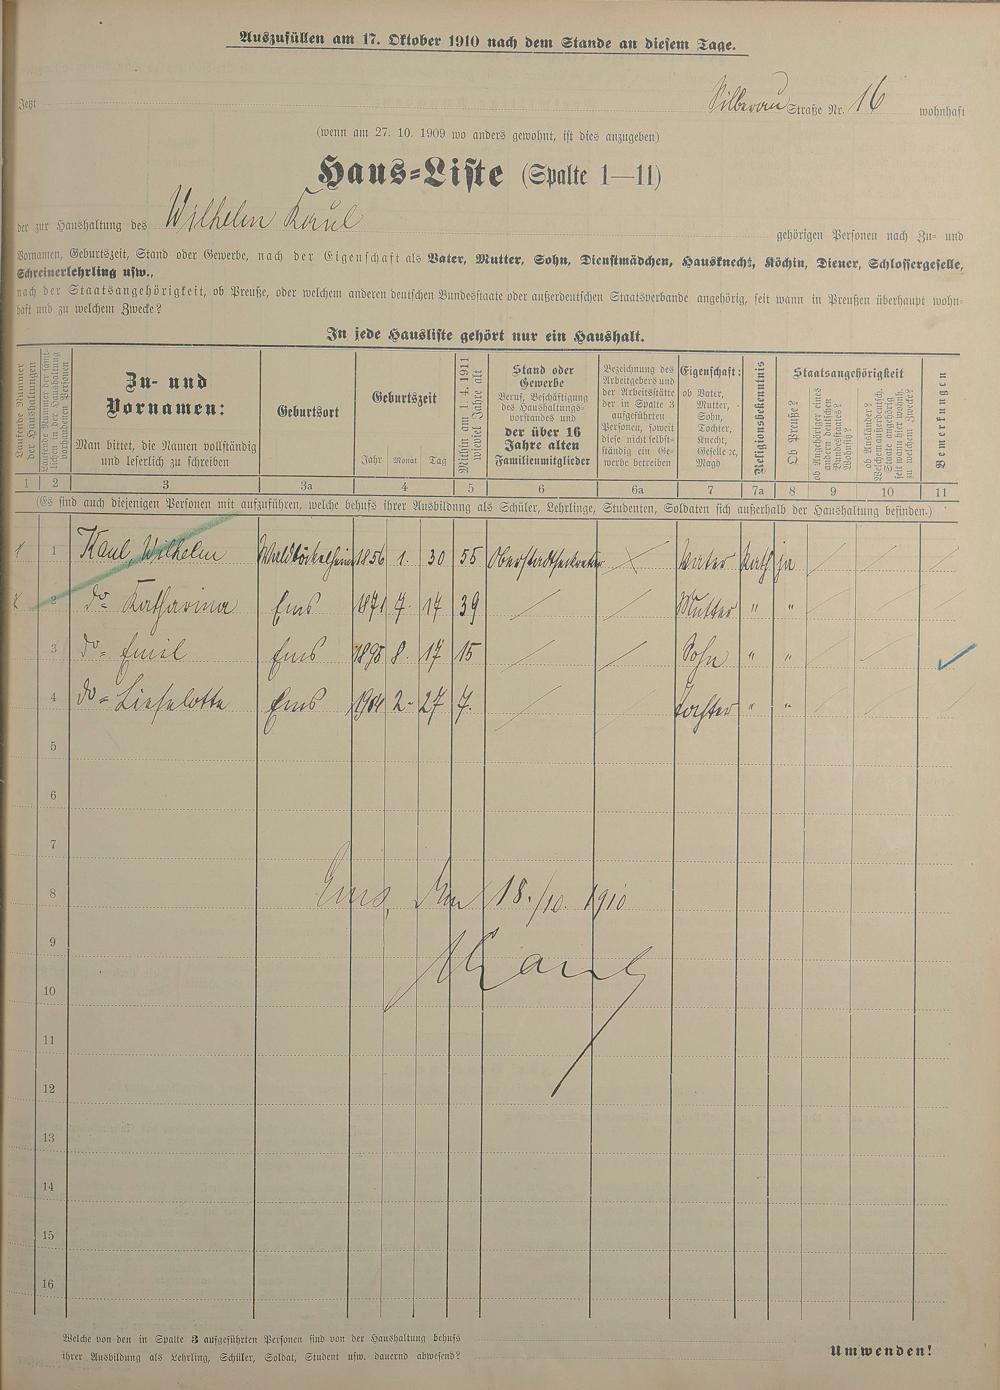 Auszufüllen am 17. Oktober 1910 nach dem Stande an diesem Tage.
Jetzt Silberau Straße Nr. 16 wohnhaft
(wenn am 27. 10. 1909 wo anders gewohnt, ist dies anzugeben)
Haus-Liste (Spalte 1—11)
der zur Haushaltung des Wilhelm Kaul gehörigen Personen nach Zu- und
Vornamen, Geburtszeit, Stand oder Gewerbe, nach der Eigenschaft als Vater, Mutter, Sohn, Dienstmädchen, Hausknecht, Köchin, Diener, Schlossergeselle,
Schreinerlehrling usw.,
nach der Staatsangehörigkeit, ob Preuße, oder welchem anderen deutschen Bundesstaate oder außerdeutschen Staatsverbande angehörig, seit wann in Preußen überhaupt wohn-
haft und zu welchem Zwecke?
In jede Hausliste gehört nur ein Haushalt.
Laufende Nummer
der Haushaltungen
laufende Nummer der sämt-
lichen in der Haushaltung
vorhandenen Personen
Zu- und
Vornamen:
Man bittet, die Namen vollständig
und leserlich zu schreiben
Geburtsort
Geburtszeit
Jahr Monat Tag
Mithin am 1. 4. 1911
wieviel Jahre alt
Stand oder
Gewerbe
Beruf, Beschäftigung
des Haushaltungs-
vorstandes und
der über 16
Jahre alten
Familienmitglieder
Bezeichnung des
Arbeitgebers und
der Arbeitsstätte
der in Spalte 3
aufgeführten
Personen, soweit
diese nicht selbst-
ständig ein Ge-
werbe betreiben
Eigenschaft:
ob Vater,
Mutter,
Sohn,
Tochter,
Knecht,
Geselle ꝛc,
Magd
Religionsbekenntnis
Staatsangehörigkeit
Ob Preuße?
ob Angehöriger eines
andern deutschen
Bundesstaates?
Wohnsitz?
ob Ausländer?
Welchem außerdeutsch.
Staate angehörig
seit wann hier wohnh.
zu welchem Zwecke?
Bemerkungen
1 2 3 3a 4 5 6 6a 7 7a 8 9 10 11
(Es sind auch diejenigen Personen mit aufzuführen, welche behufs ihrer Ausbildung als Schüler, Lehrlinge, Studenten, Soldaten sich außerhalb der Haushaltung befinden.)
1 1 Kaul, Wilhelm Waldböckelheim 1856 1. 30 55 Oberstadtsekretär Vater Kath ja
2 do= Katharina Ems 1871 7. 17 39 Mutter " "
3 do= Emil Ems 1895 8. 17 15 Sohn " "
4 do= Lieselotte Ems 1904 2. 27 7. Tochter " "
5
6
7
8 Ems, den 18./10. 1910
9
10 Kaul
11
12
13
14
15
16
Welche von den in Spalte 3 aufgeführten Personen sind von der Haushaltung behufs
ihrer Ausbildung als Lehrling, Schüler, Soldat, Student usw. dauernd abwesend?
Umwenden!